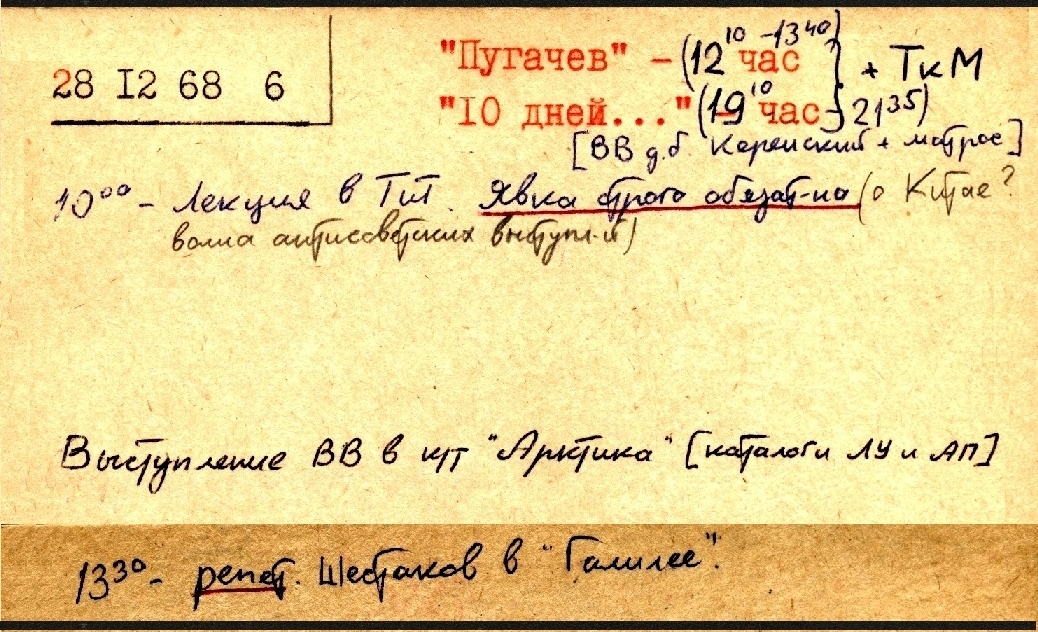 28 I2 68 6
"Пугачев" – (12¹⁰ час –13⁴⁰) + ТкМ
"IO дней..." (19¹⁰ час – 21³⁵)
[ВВ д.б. Керенский + матрос]
10⁰⁰ – Лекция в ТиТ. Явка строго обязат-на (о Китае?
волна антисоветских выступл-й)
Выступление ВВ в к/т "Арктика" [каталоги ЛУ и АП]
13³⁰ – репет. Шестаков в "Галилее".